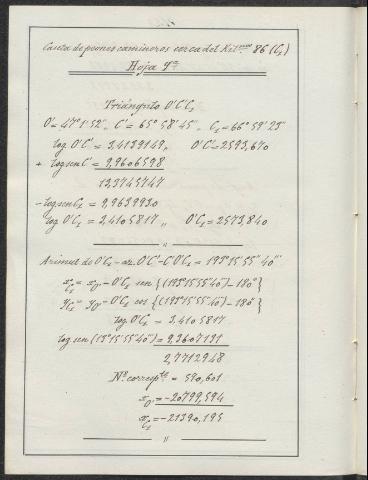 Caseta de peones camineros cerca del Kil.ᵐᵉᵗʳᵒ 86 (C₂)
Hoja 9ª
Triángulo O'C'C₂
O' = 47° 1' 52", C' = 65° 58' 45", C₂ = 66° 59' 23"
log O'C' = 3,4139149, O'C' = 2593,670
+ log sen C' = 9,9606598
13,3745747
- log sen C₂ = 9,9639930
log O'C₂ = 3,4105817 ,, O'C₂ = 2573,840
Azimut de O'C₂ = az. O'C' - C'O'C₂ = 193° 15' 55" 40'''
x_C₂ = x_O' - O'C₂ sen {(193° 15' 55" 40''') - 180°}
y_C₂ = y_O' - O'C₂ cos {(193° 15' 55" 40''') - 180°}
log O'C₂ = 3,4105817
log sen (13° 15' 55" 40''') = 9,3607131
2,7712948
Nº correspᵗᵉ = 590,601
x_O' = -20799,594
x_C₂ = -21390,195